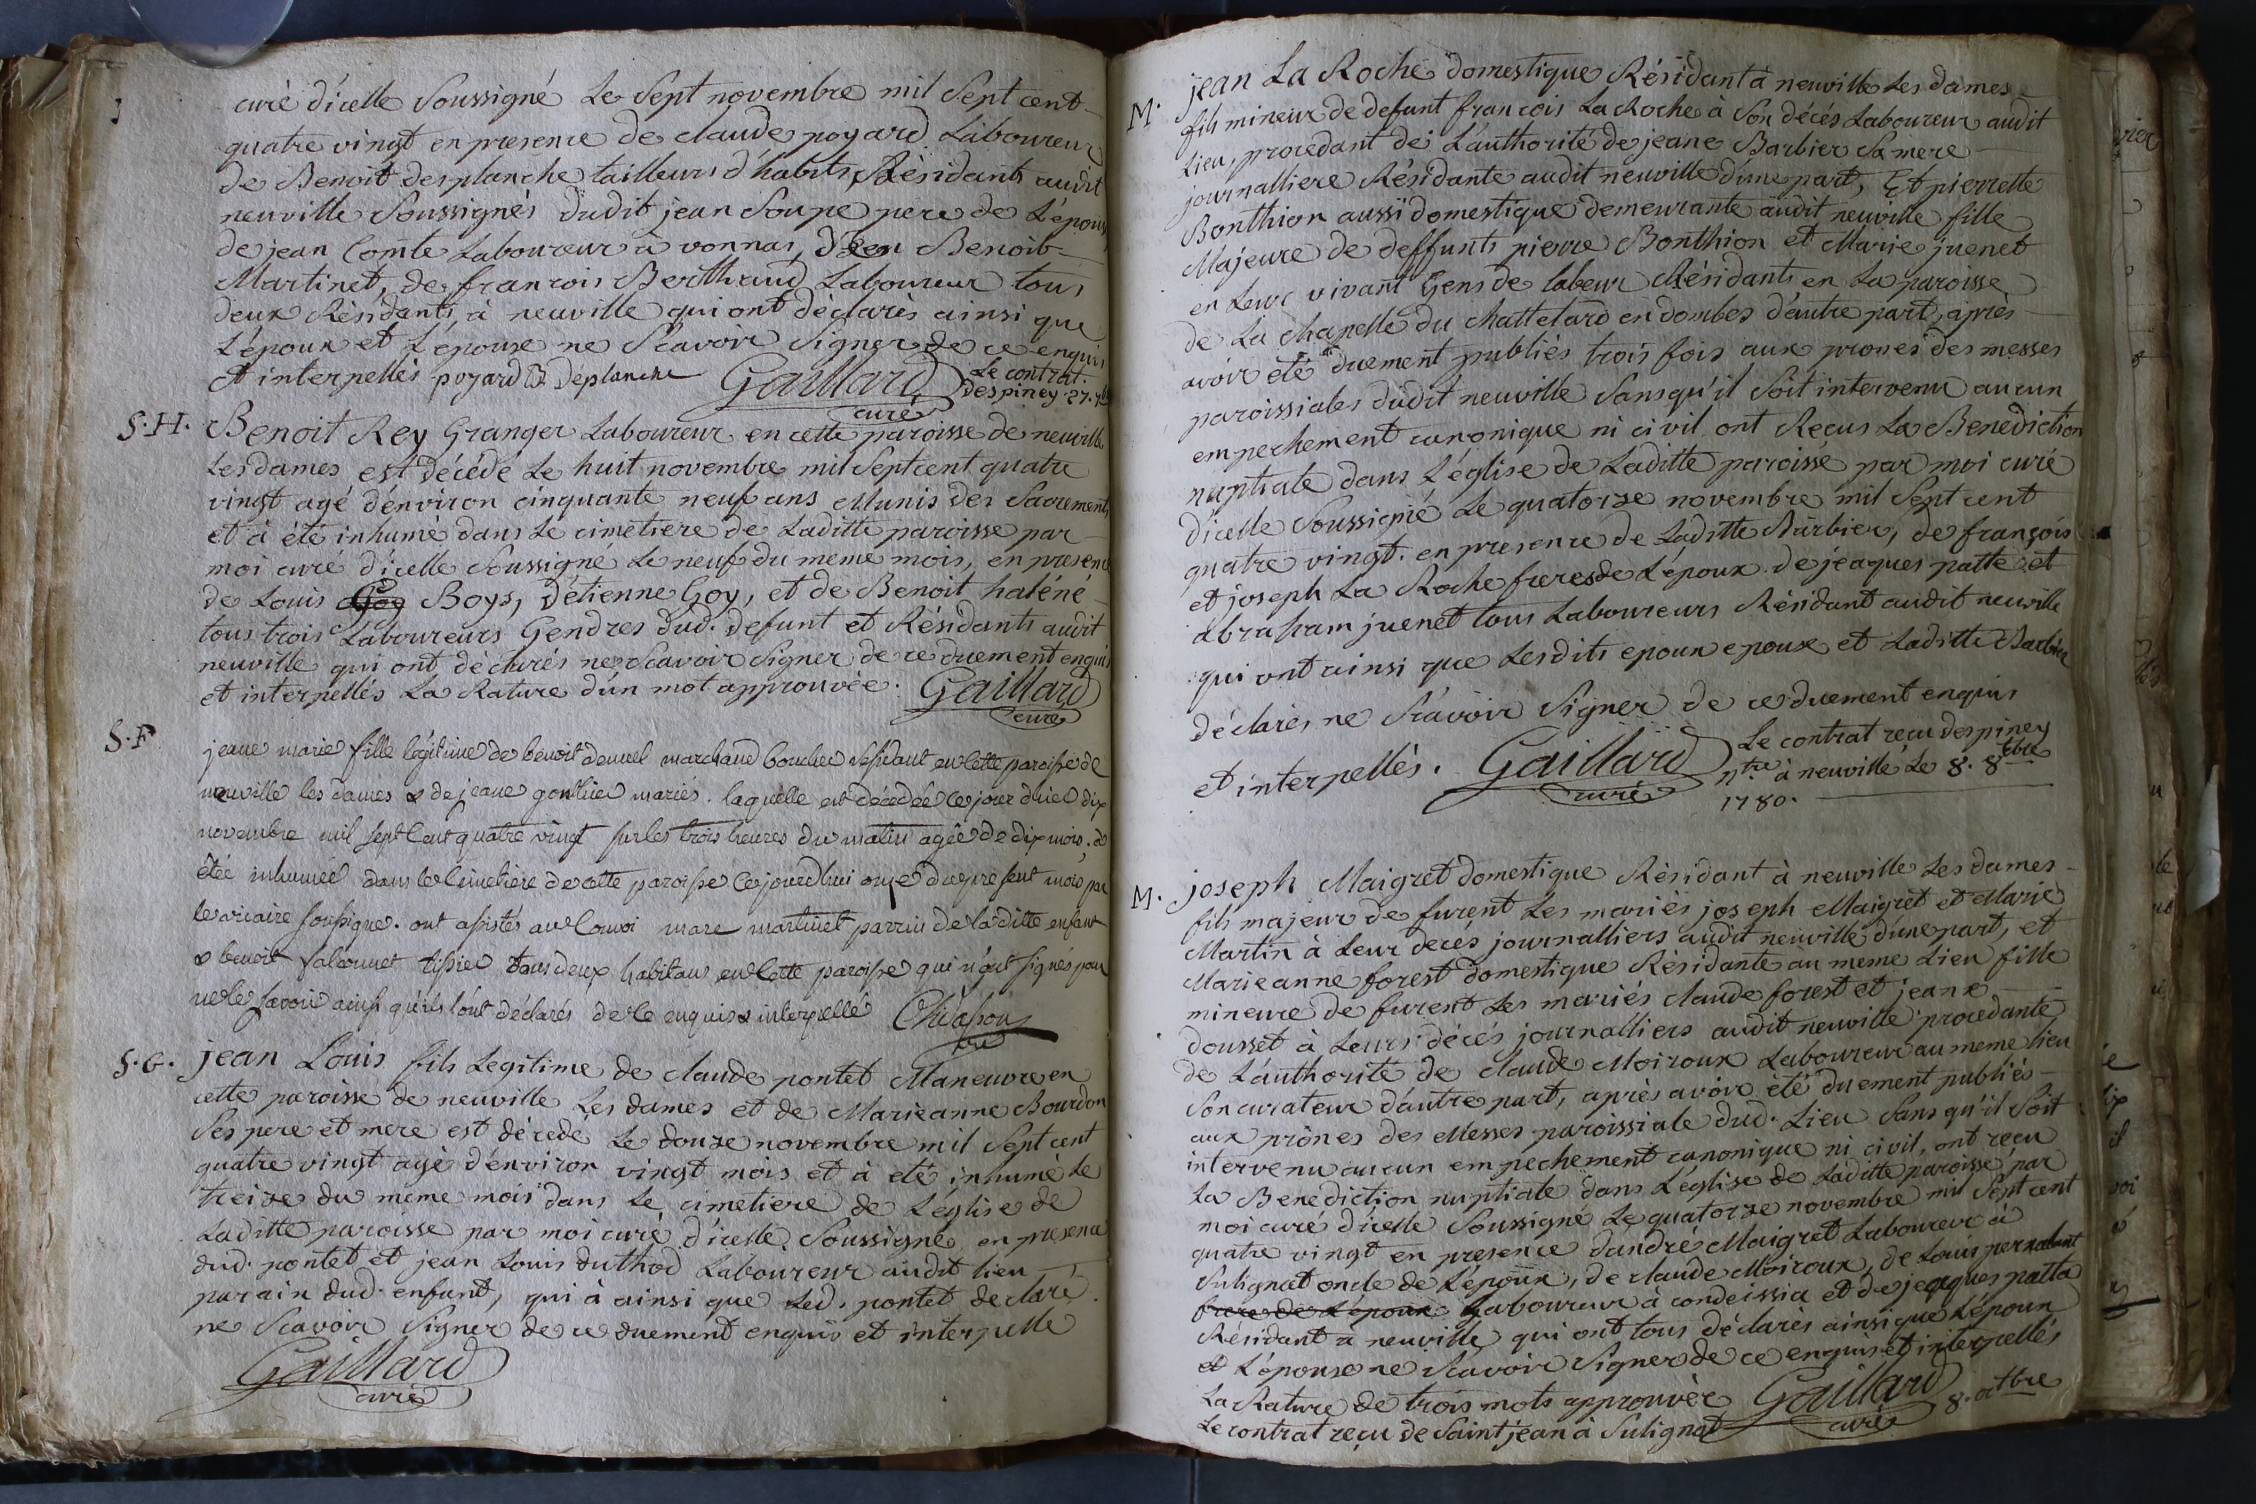 curé d'icelle Soussigné Le Sept novembre mil Sept cent
quatre vingt en presence de claude poyard Laboureur
de Benoit desplanche tailleurs d'habits, Résidants audit
neuville Soussignés dudit jean Soupe pere de L'épouse
de jean Comte Laboureur à vonnas, de Benoit
Martinet, de francois Berthaud Laboureur tous
deux Résidants à neuville qui ont déclarés ainsi que
L'époux et L'épouse ne Scavoir Signer de ce enquis
et interpellés poyard B Déplanche Gaillard curé Le contrat. Despiney 27. 7bre
S.H. Benoit Rey Granger Laboureur en cette paroisse de neuville
Les dames est décédé Le huit novembre mil Sept cent quatre
vingt agé d'environ cinquante neuf ans Munis des Sacrements
et à été inhumé dans Le cimetiere de Laditte paroisse par
moi curé d'icelle Soussigné Le neuf du meme mois, en presence
de Louis Goy Boys, d'étienne Goy, et de Benoit haléné
tous trois Laboureurs Gendres dud. defunt et Résidants audit
neuville qui ont déclarés ne Scavoir Signer de ce duement enquis
et interpellés La Rature d'un mot approuvée. Gaillard curé
S.F jeane marie fille légitime de benoit demiel marchand boucher résidant en cette paroisse de
neuville les dames & de jeane gonthier mariés. laquelle est décédée ce jour d'hier dix
novembre mil sept cent quatre vingt sur les trois heures du matin agée de dix mois. &
étée inhumée dans le cimetiere de cette paroisse cejourdhui onze du present mois par
le vicaire soussigné. ont assistés au convoi marc martinet parrin de laditte enfant
& benoit falconnet tissier tous deux habitans en cette paroisse qui n'ont signés pour
ne le savoir ainsi qu'ils l'ont déclarés de ce enquis & interpellé Chapon vre
S.G. jean Louis fils Legitime de claude pontet Maneuvre en
cette paroisse de neuville Les dames et de Marieanne Bourdon
Ses pere et mere est décedé Le douze novembre mil Sept cent
quatre vingt agé d'environ vingt mois et à eté inhumé Le
treize du meme mois dans Le cimetiere de L'église de
Laditte paroisse par moi curé d'icelle Soussigné en presence
dud. pontet et jean Louis duthod Laboureur audit lieu
parain dud. enfant, qui à ainsi que Led. pontet declaré
ne Scavoir Signer de ce duement enquis et interpellé
Gaillard
curé
M. jean La Roche domestique Résidant à neuville Les dames
fils mineur de defunt francois La Roche à Son décés Laboureur audit
Lieu, procedant de L'authorité de jeane Barbier Sa mere
journalliere Résidante audit neuville d'une part, Et pierrette
Bonthion aussi domestique demeurante audit neuville fille
Majeure de deffunts pierre Bonthion et Marie juenet
en Leur vivant Gens de labeur Résidants en La paroisse
de La chapelle du chattelard en dombes d'autre part, après
avoir été duement publiés trois fois aux prones des messes
paroissiales dudit neuville Sans qu'il Soit intervenu aucun
empechement canonique ni civil ont Recus La Benediction
nuptiale dans L'église de Laditte paroisse par moi curé
d'icelle Soussigné Le quatorze novembre mil Sept cent
quatre vingt. en presence de Laditte Barbier, de françois
et joseph La Roche freres de L'époux. de jeaques patte et
abraham juenet tous Laboureurs Résidant audit neuville
qui ont ainsi que Lesdits epoux epouse et Laditte Barbier
déclarés ne Scavoir Signer de ce duement enquis
et interpellés. Gaillard curé Le contrat recu despiney
ntre à neuville Le 8. 8bre
1780.
M. joseph Maigret domestique Résidant à neuville Les dames
fils majeur de furent Les mariés joseph Maigret et Marie
Martin à Leur decés journalliers audit neuville d'une part, et
Marieanne forest domestique Résidante au meme Lieu fille
mineure de furent Les mariés claude forest et jeane
dousset à Leurs décés journalliers audit neuville procedante
de L'authorité de claude Moiroux Laboureur au meme lieu
Son curateur d'autre part, après avoir été duement publiés
aux prônes des Messes paroissiale dud. Lieu Sans qu'il Soit
intervenu aucun empechement canonique ni civil, ont recu
La Benediction nuptiale dans L'église de Laditte paroisse par
moi curé d'icelle Soussigné Le quatorze novembre mil Sept cent
quatre vingt en presence d'andre Maigret Laboureur à
Sulignat oncle de L'époux, de claude Moiroux, de Louis
frere de L'époux Laboureur à condeissia et de jeaques patta
Résidant à neuville qui ont tous déclarés ainsi que L'époux
et L'épouse ne Scavoir Signer de ce enquis et interpellés
La Rature de trois mots approuvée Gaillard curé
Le contrat reçu de Saint jean à Sulignat 8. 8tbre